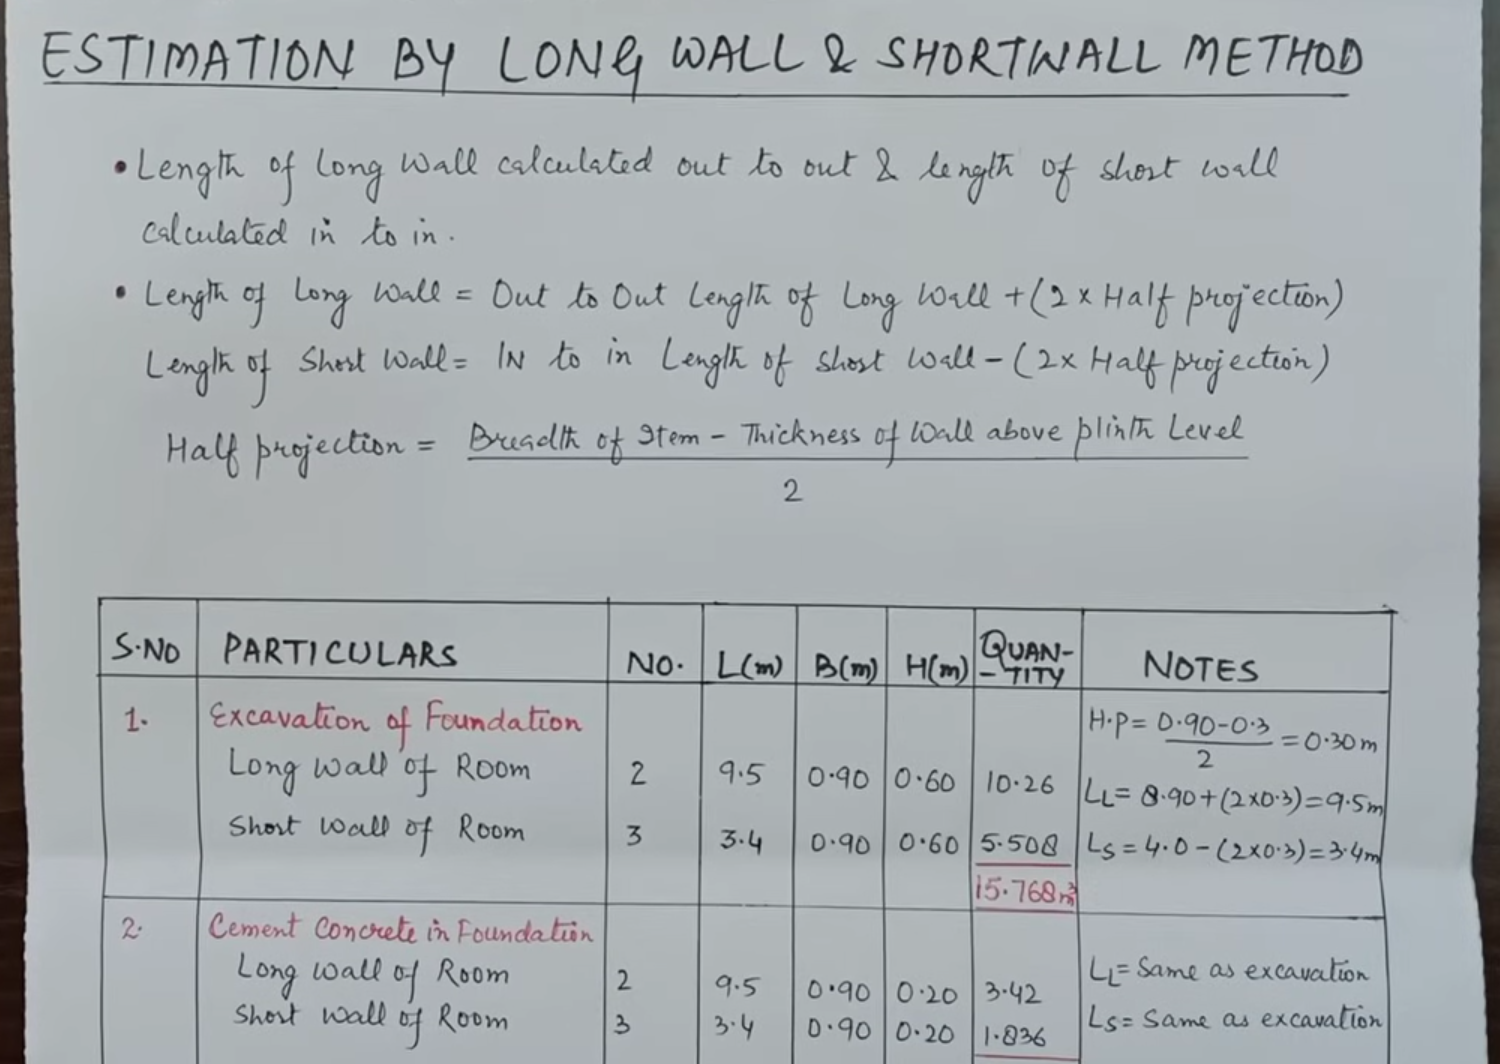 ESTIMATION BY LONG WALL & SHORTWALL METHOD
• Length of Long Wall calculated out to out & length of short wall
calculated in to in.
• Length of Long Wall = Out to Out Length of Long Wall + (2 x Half projection)
Length of Short Wall = IN to in Length of Short Wall - (2x Half projection)
Half projection = Breadth of Item - Thickness of Wall above plinth Level
2
S.NO PARTICULARS NO. L(m) B(m) H(m) QUAN-
-TITY NOTES
1. Excavation of Foundation H.P = 0.90-0.3 = 0.30m
2
Long wall of Room 2 9.5 0.90 0.60 10.26 LL = 8.90+(2x0.3)=9.5m
Short wall of Room 3 3.4 0.90 0.60 5.508 LS = 4.0-(2x0.3)=3.4m
15.768m³
2. Cement Concrete in Foundation
Long wall of Room 2 9.5 0.90 0.20 3.42 LL= Same as excavation
Short wall of Room 3 3.4 0.90 0.20 1.836 LS= Same as excavation